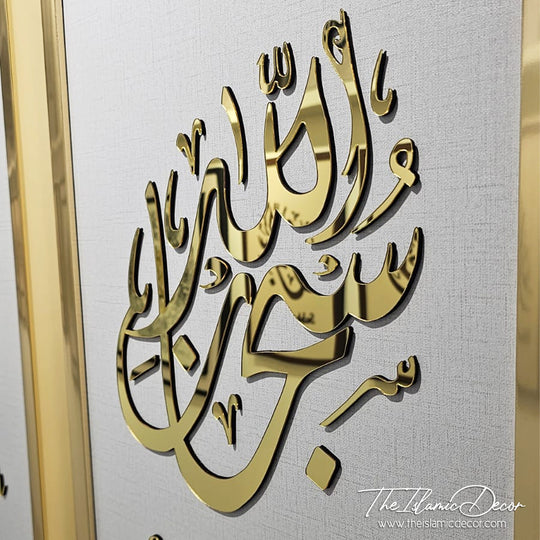 سبحان الله
The Islamic Decor
www.theislamicdecor.com